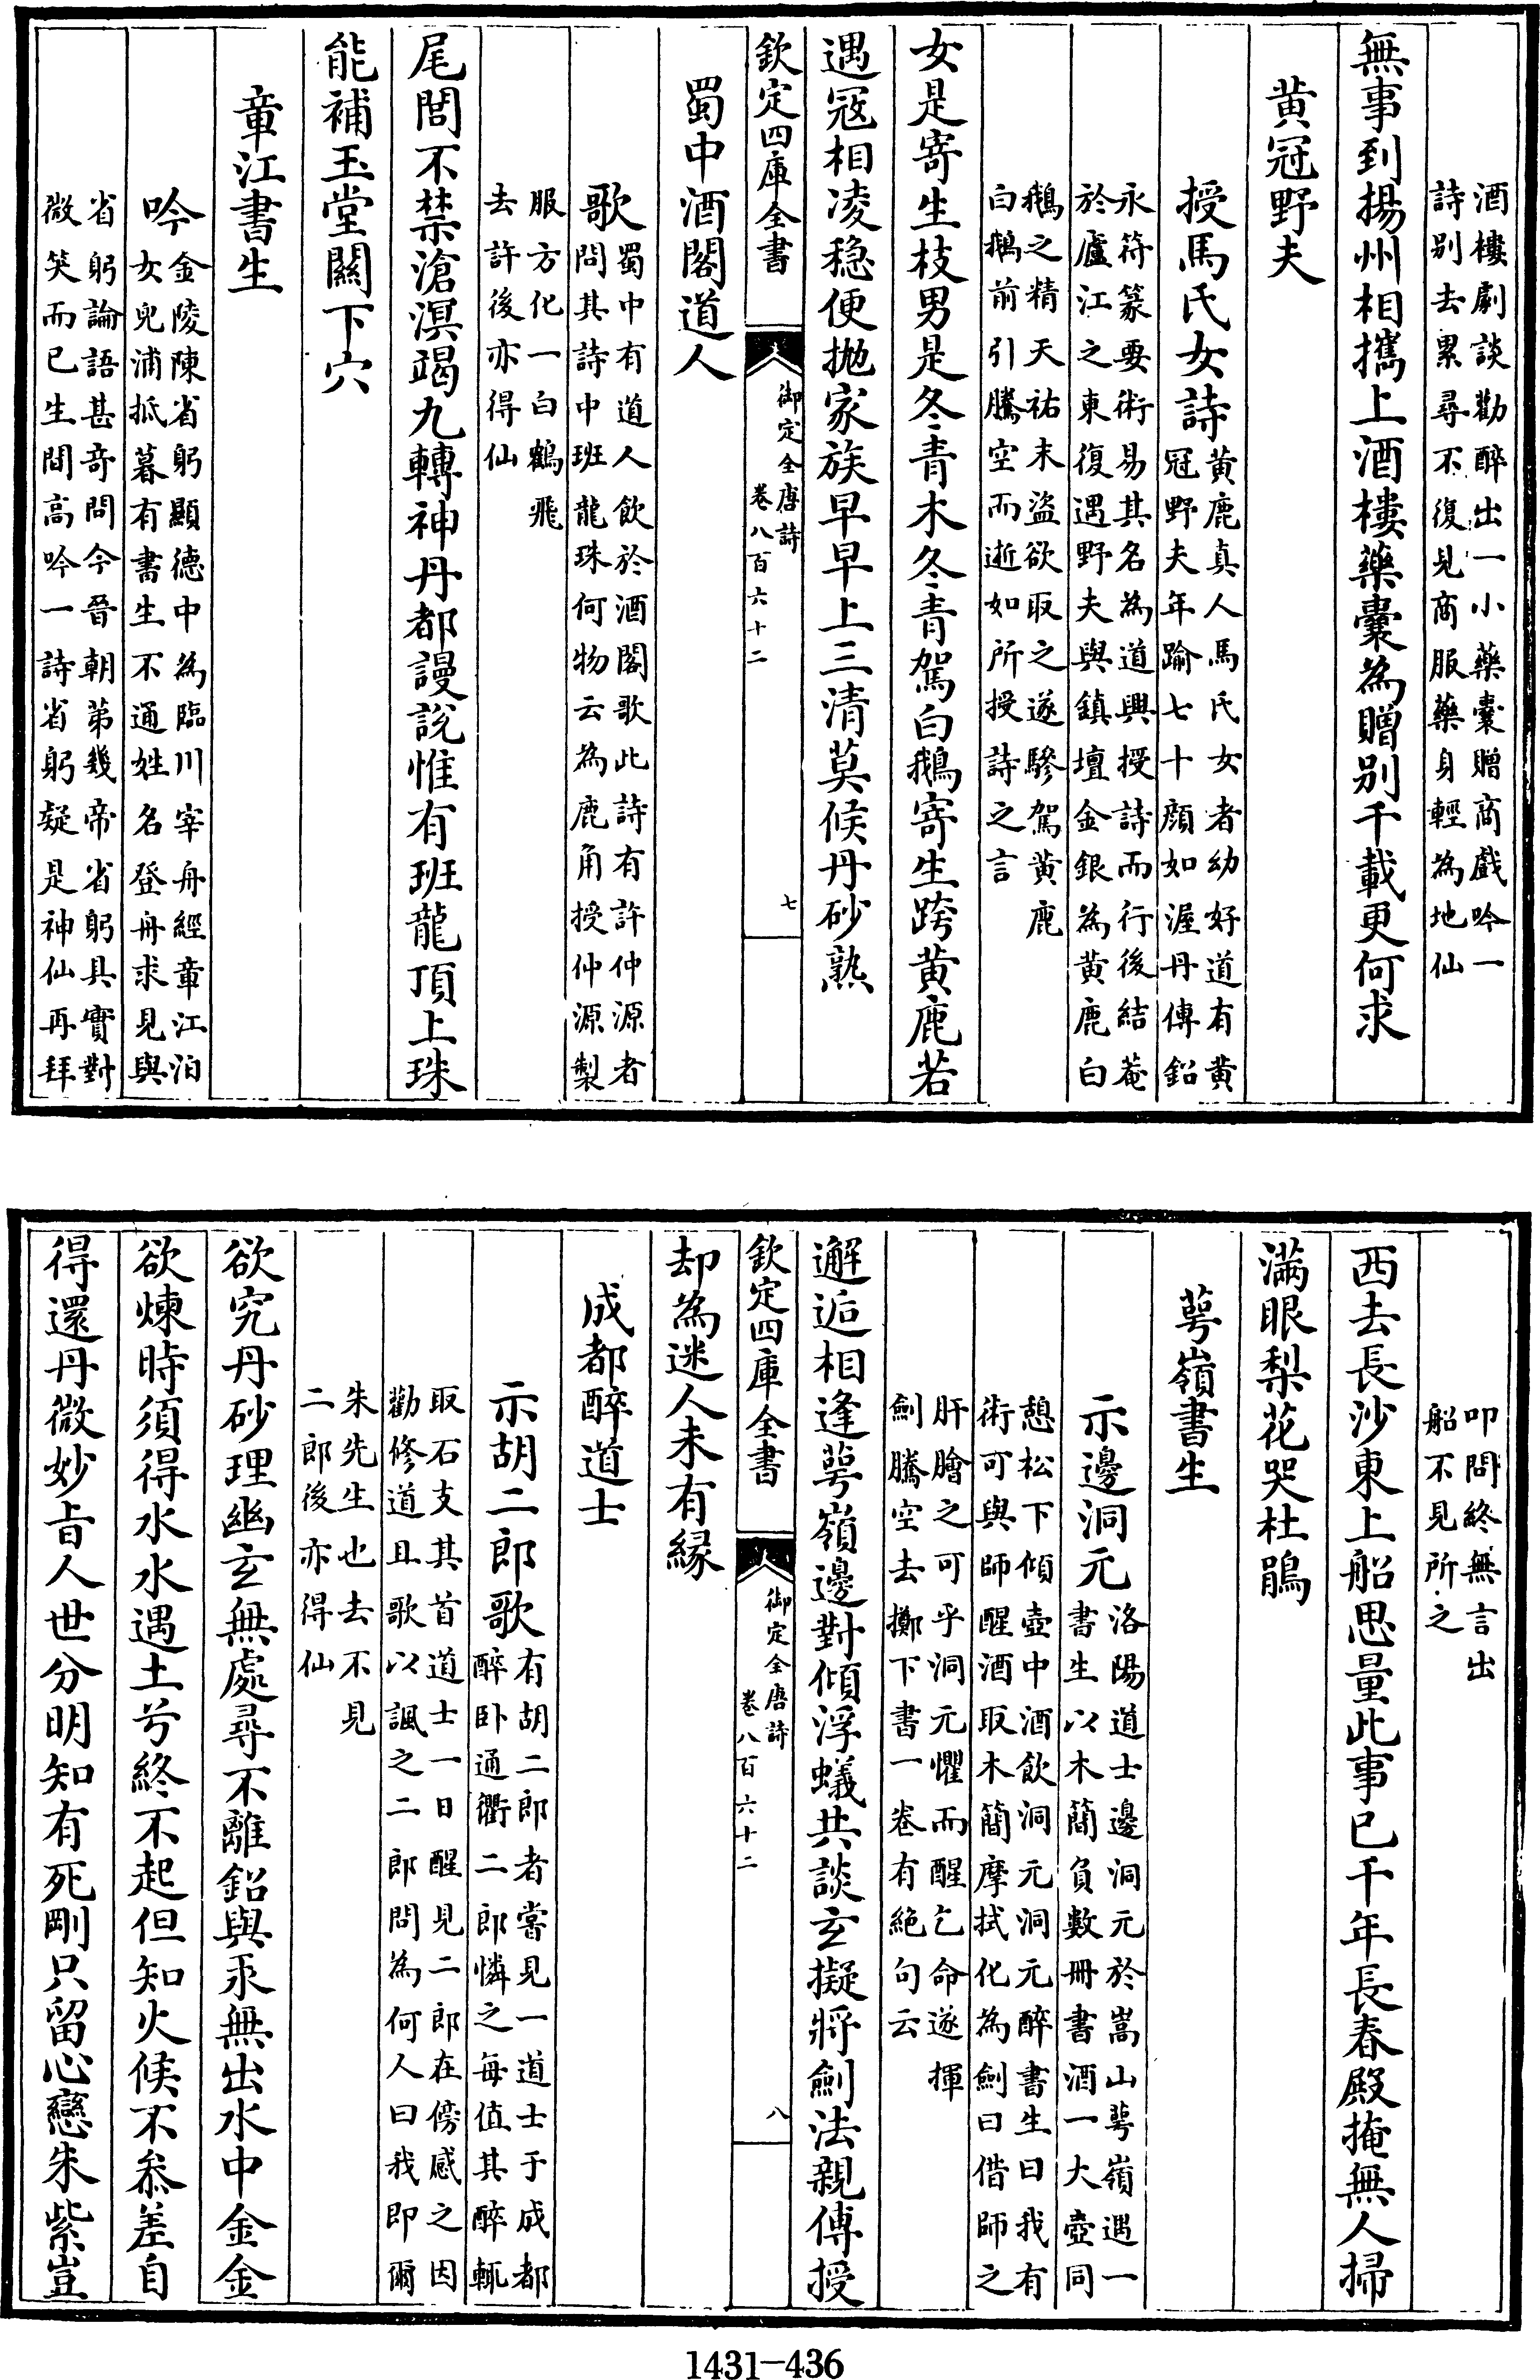 酒樓劇談勸醉出一小藥囊贈商戲吟一
詩别去累尋不復見商服藥身輕為地仙
無事到揚州相攜上酒樓藥囊為贈别千載更何求
黄冠野夫
授馬氏女詩
黄鹿真人馬氏女者幼好道有黄
冠野夫年踰七十顔如渥丹傳鉛
永符篆要術易其名為道興授詩而行後結菴
於廬江之東復遇野夫與鎮壇金銀為黄鹿白
鵝之精天祐末盜欲取之遂驂駕黄鹿
白鵝前引騰空而逝如所授詩之言
女是寄生枝男是冬青木冬青駕白鵝寄生跨黄鹿若
遇冦相凌稳便抛家族早早上三清莫候丹砂熟
欽定四庫全書
御定全唐詩
卷八百六十二
七
蜀中酒閣道人
歌
蜀中有道人飲於酒閣歌此詩有許仲源者
問其詩中班龍珠何物云為鹿角授仲源製
服方化一白鶴飛
去許後亦得仙
尾閭不禁滄溟竭九轉神丹都謾說惟有班龍頂上珠
能補玉堂關下穴
章江書生
吟
金陵陳省躬顯德中為臨川宰舟經章江泊
女兒浦抵暮有書生不通姓名登舟求見與
省躬論語甚奇問今晉朝第幾帝省躬具實對
微笑而已生間高吟一詩省躬疑是神仙再拜
叩問終無言出
船不見所之
西去長沙東上船思量此事已千年長春殿掩無人掃
滿眼梨花哭杜鵑
萼嶺書生
示邊洞元
洛陽道士邊洞元於嵩山萼嶺遇一
書生以木簡負數冊書酒一大壺同
憩松下傾壺中酒飲洞元洞元醉書生曰我有
術可與師醒酒取木簡摩拭化為劍曰借師之
肝膾之可乎洞元懼而醒乞命遂揮
劍騰空去擲下書一卷有絶句云
邂逅相逢萼嶺邊對傾浮蟻共談玄擬將劍法親傳授
欽定四庫全書
御定全唐詩
卷八百六十二
八
却為迷人未有縁
成都醉道士
示胡二郎歌
有胡二郎者嘗見一道士于成都
醉卧通衢二郎憐之每值其醉輒
取石支其首道士一日醒見二郎在傍感之因
勸修道且歌以諷之二郎問為何人曰我即爾
朱先生也去不見
二郎後亦得仙
欲究丹砂理幽玄無處尋不離鉛與汞無出水中金金
欲煉時須得水水遇土兮終不起但知火候不叅差自
得還丹微妙㫖人世分明知有死剛只留心戀朱紫豈
1431—436